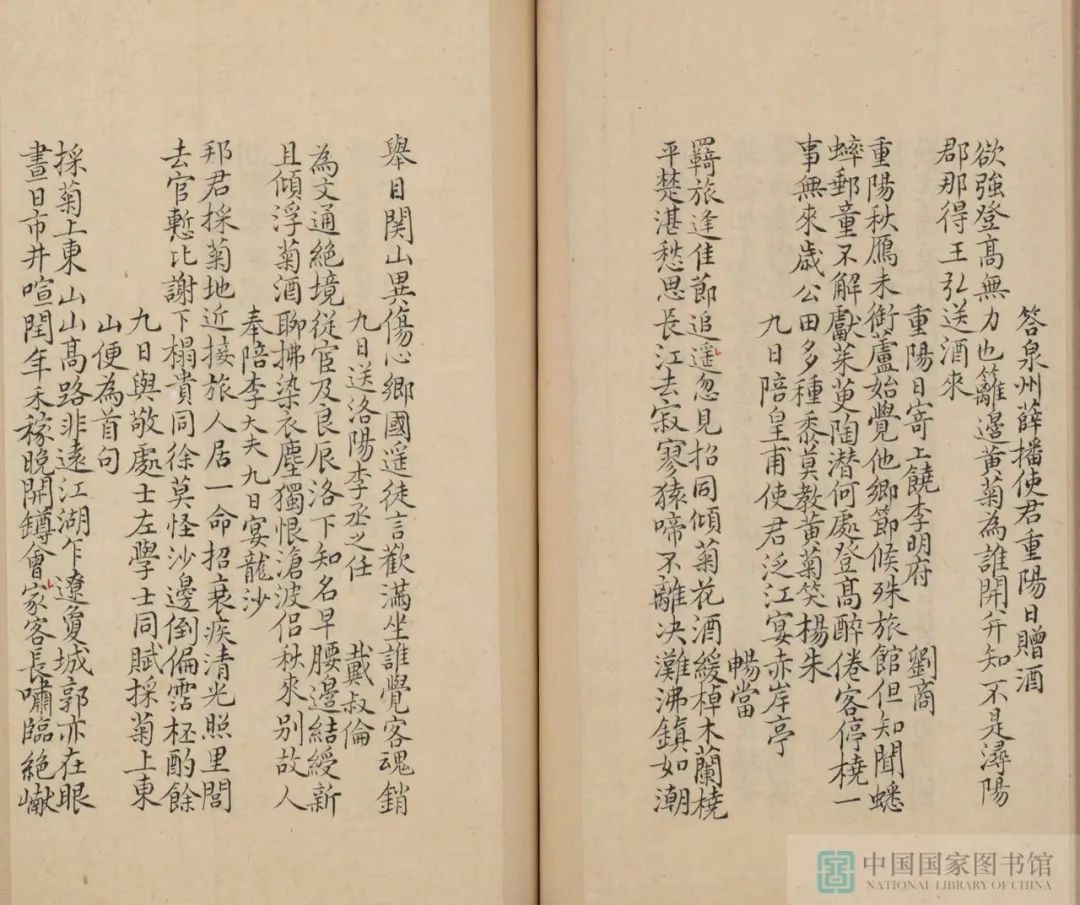 答泉州薛播使君重陽日贈酒
欲強登高無力也籬邊黃菊為誰開弁知不是潯陽
郡那得王弘送酒來
重陽日寄上饒李明府 劉商
重陽秋鴈未銜蘆始覺他鄉節候殊旅館但知聞蟋
蟀郵童不解獻茱萸陶潜何處登高醉倦客停橈一
事無來歲公田多種黍莫教黃菊笑楊朱
九日陪皇甫使君泛江宴赤岸亭
暢當
羇旅逢佳節追遥忽見招同傾菊花酒緩棹木蘭橈
平楚湛愁思長江去寂寥猿啼不離决灘沸鎮如潮
舉目関山異傷心鄉國遥徒言歡滿坐誰覺客魂銷
九日送洛陽李丞之任 戴叔倫
為文通絕境從宦及良辰洛下知名早腰邊結綬新
且傾浮菊酒聊拂染衣塵獨恨滄波侶秋來別故人
奉陪李大夫九日宴龍沙
邦君採菊地近接旅人居一命招衰疾清光照里閭
去官慙比謝下榻貴同徐莫怪沙邊倒偏霑杯酌餘
九日與敬處士左學士同賦採菊上東
山便為首句
採菊上東山山高路非遠江湖乍遼夐城郭亦在眼
晝日市井喧閏年禾稼晚開罇會家客長嘯臨絕巘
中国国家图书馆
NATIONAL LIBRARY OF CHINA